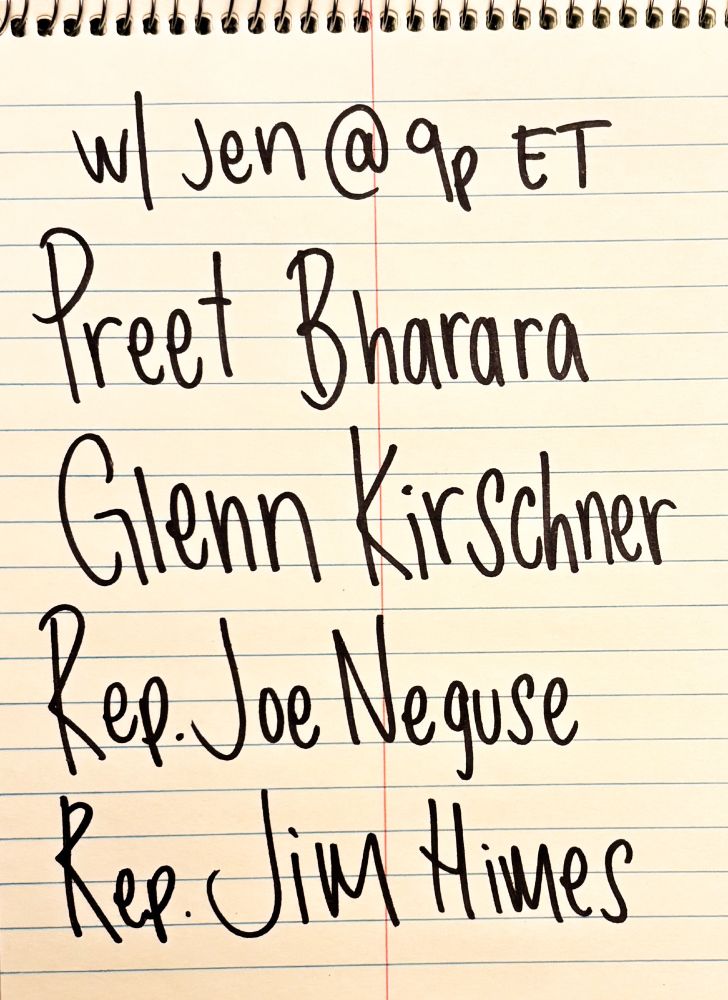 w/ Jen @ 9p ET
Preet Bharara
Glenn Kirschner
Rep. Joe Neguse
Rep. Jim Himes